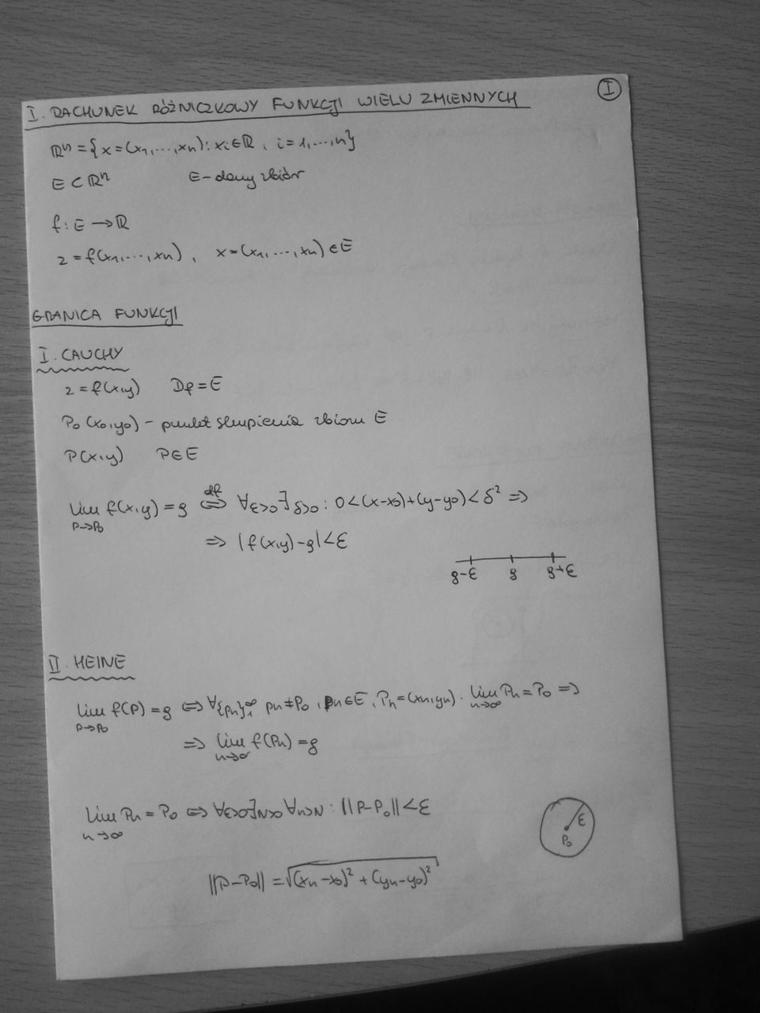 I. RACHUNEK RÓŻNICZKOWY FUNKCJI WIELU ZMIENNYCH
I
ℝⁿ = {x = (x₁, ..., xₙ) : xᵢ ∈ ℝ, i = 1, ..., n}
E ⊂ ℝⁿ E - dany zbiór
f : E → ℝ
z = f(x₁, ..., xₙ), x = (x₁, ..., xₙ) ∈ E
GRANICA FUNKCJI
I. CAUCHY
z = f(x,y) Df = E
P₀(x₀,y₀) - punkt skupienia zbioru E
P(x,y) P ∈ E
lim f(x,y) = g ⇔ df ∀ε>0 ∃δ>0 : 0 < (x-x₀)+(y-y₀) < δ² ⇒
P→P₀
⇒ |f(x,y)-g| < ε
g-ε g g+ε
II. HEINE
lim f(P) = g ⇔ ∀{pₙ}₁^∞ pₙ ≠ P₀, pₙ ∈ E, Pₙ = (xₙ,yₙ) : lim Pₙ = P₀ ⇒
P→P₀ n→∞
⇒ lim f(Pₙ) = g
n→∞
lim Pₙ = P₀ ⇔ ∀ε>0 ∃N>0 ∀n>N : ||P-P₀|| < ε
n→∞
ε
P₀
||P-P₀|| = √(xₙ-x₀)² + (yₙ-y₀)²